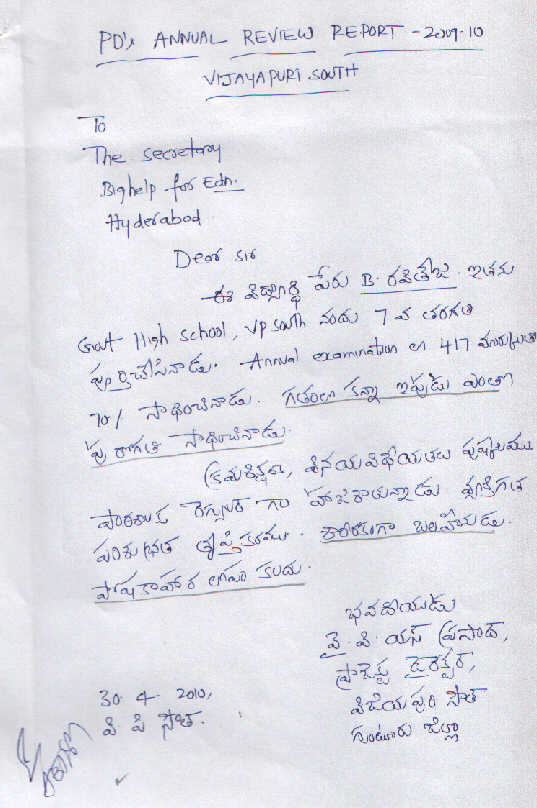 PD's ANNUAL REVIEW REPORT - 2009-10
VIJAYAPURI SOUTH
To
The secretary
Bighelp for Edn.
Hyderabad.
Dear sir
ఈ విద్యార్థి పేరు B. రవితేజ. ఇతను
Govt High school, VP south నందు 7 వ తరగతి
పూర్తిచేసినాడు. Annual examination లో 417 మార్కులతో
70% సాధించినాడు. గతంలో కన్నా ఇప్పుడు ఎంతో
పురోగతి సాధించినాడు.
క్రమశిక్షణ, వినయవిధేయతలు పుష్కలము
పాఠశాలకు రెగ్యులర్ గా హాజరౌతున్నాడు వ్యక్తిగత
పరిశుభ్రత తృప్తికరము. శారీరకంగా బలహీనుడు.
పోషకాహార లోపం కలదు.
భవదీయుడు
వై. వి. యస్ ప్రసాద్,
ప్రాజెక్టు డైరెక్టర్,
విజయపురి సౌత్
గుంటూరు జిల్లా
30-4-2010,
వి పి సౌత్.